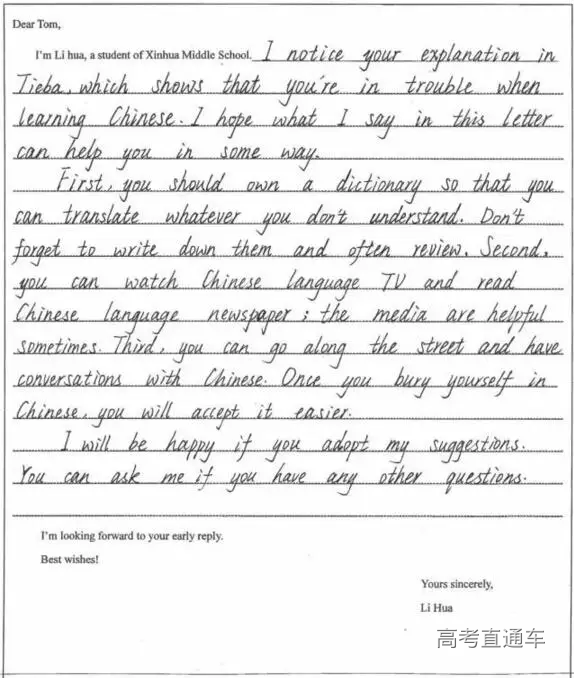 Dear Tom,
I'm Li hua, a student of Xinhua Middle School. I notice your explanation in
Tieba, which shows that you're in trouble when
learning Chinese. I hope what I say in this letter
can help you in some way.
First, you should own a dictionary so that you
can translate whatever you don't understand. Don't
forget to write down them and often review. Second,
you can watch Chinese language TV and read
Chinese language newspaper; the media are helpful
sometimes. Third, you can go along the street and have
conversations with Chinese. Once you bury yourself in
Chinese, you will accept it easier.
I will be happy if you adopt my suggestions.
You can ask me if you have any other questions.
I'm looking forward to your early reply.
Best wishes!
Yours sincerely,
Li Hua
高考直通车